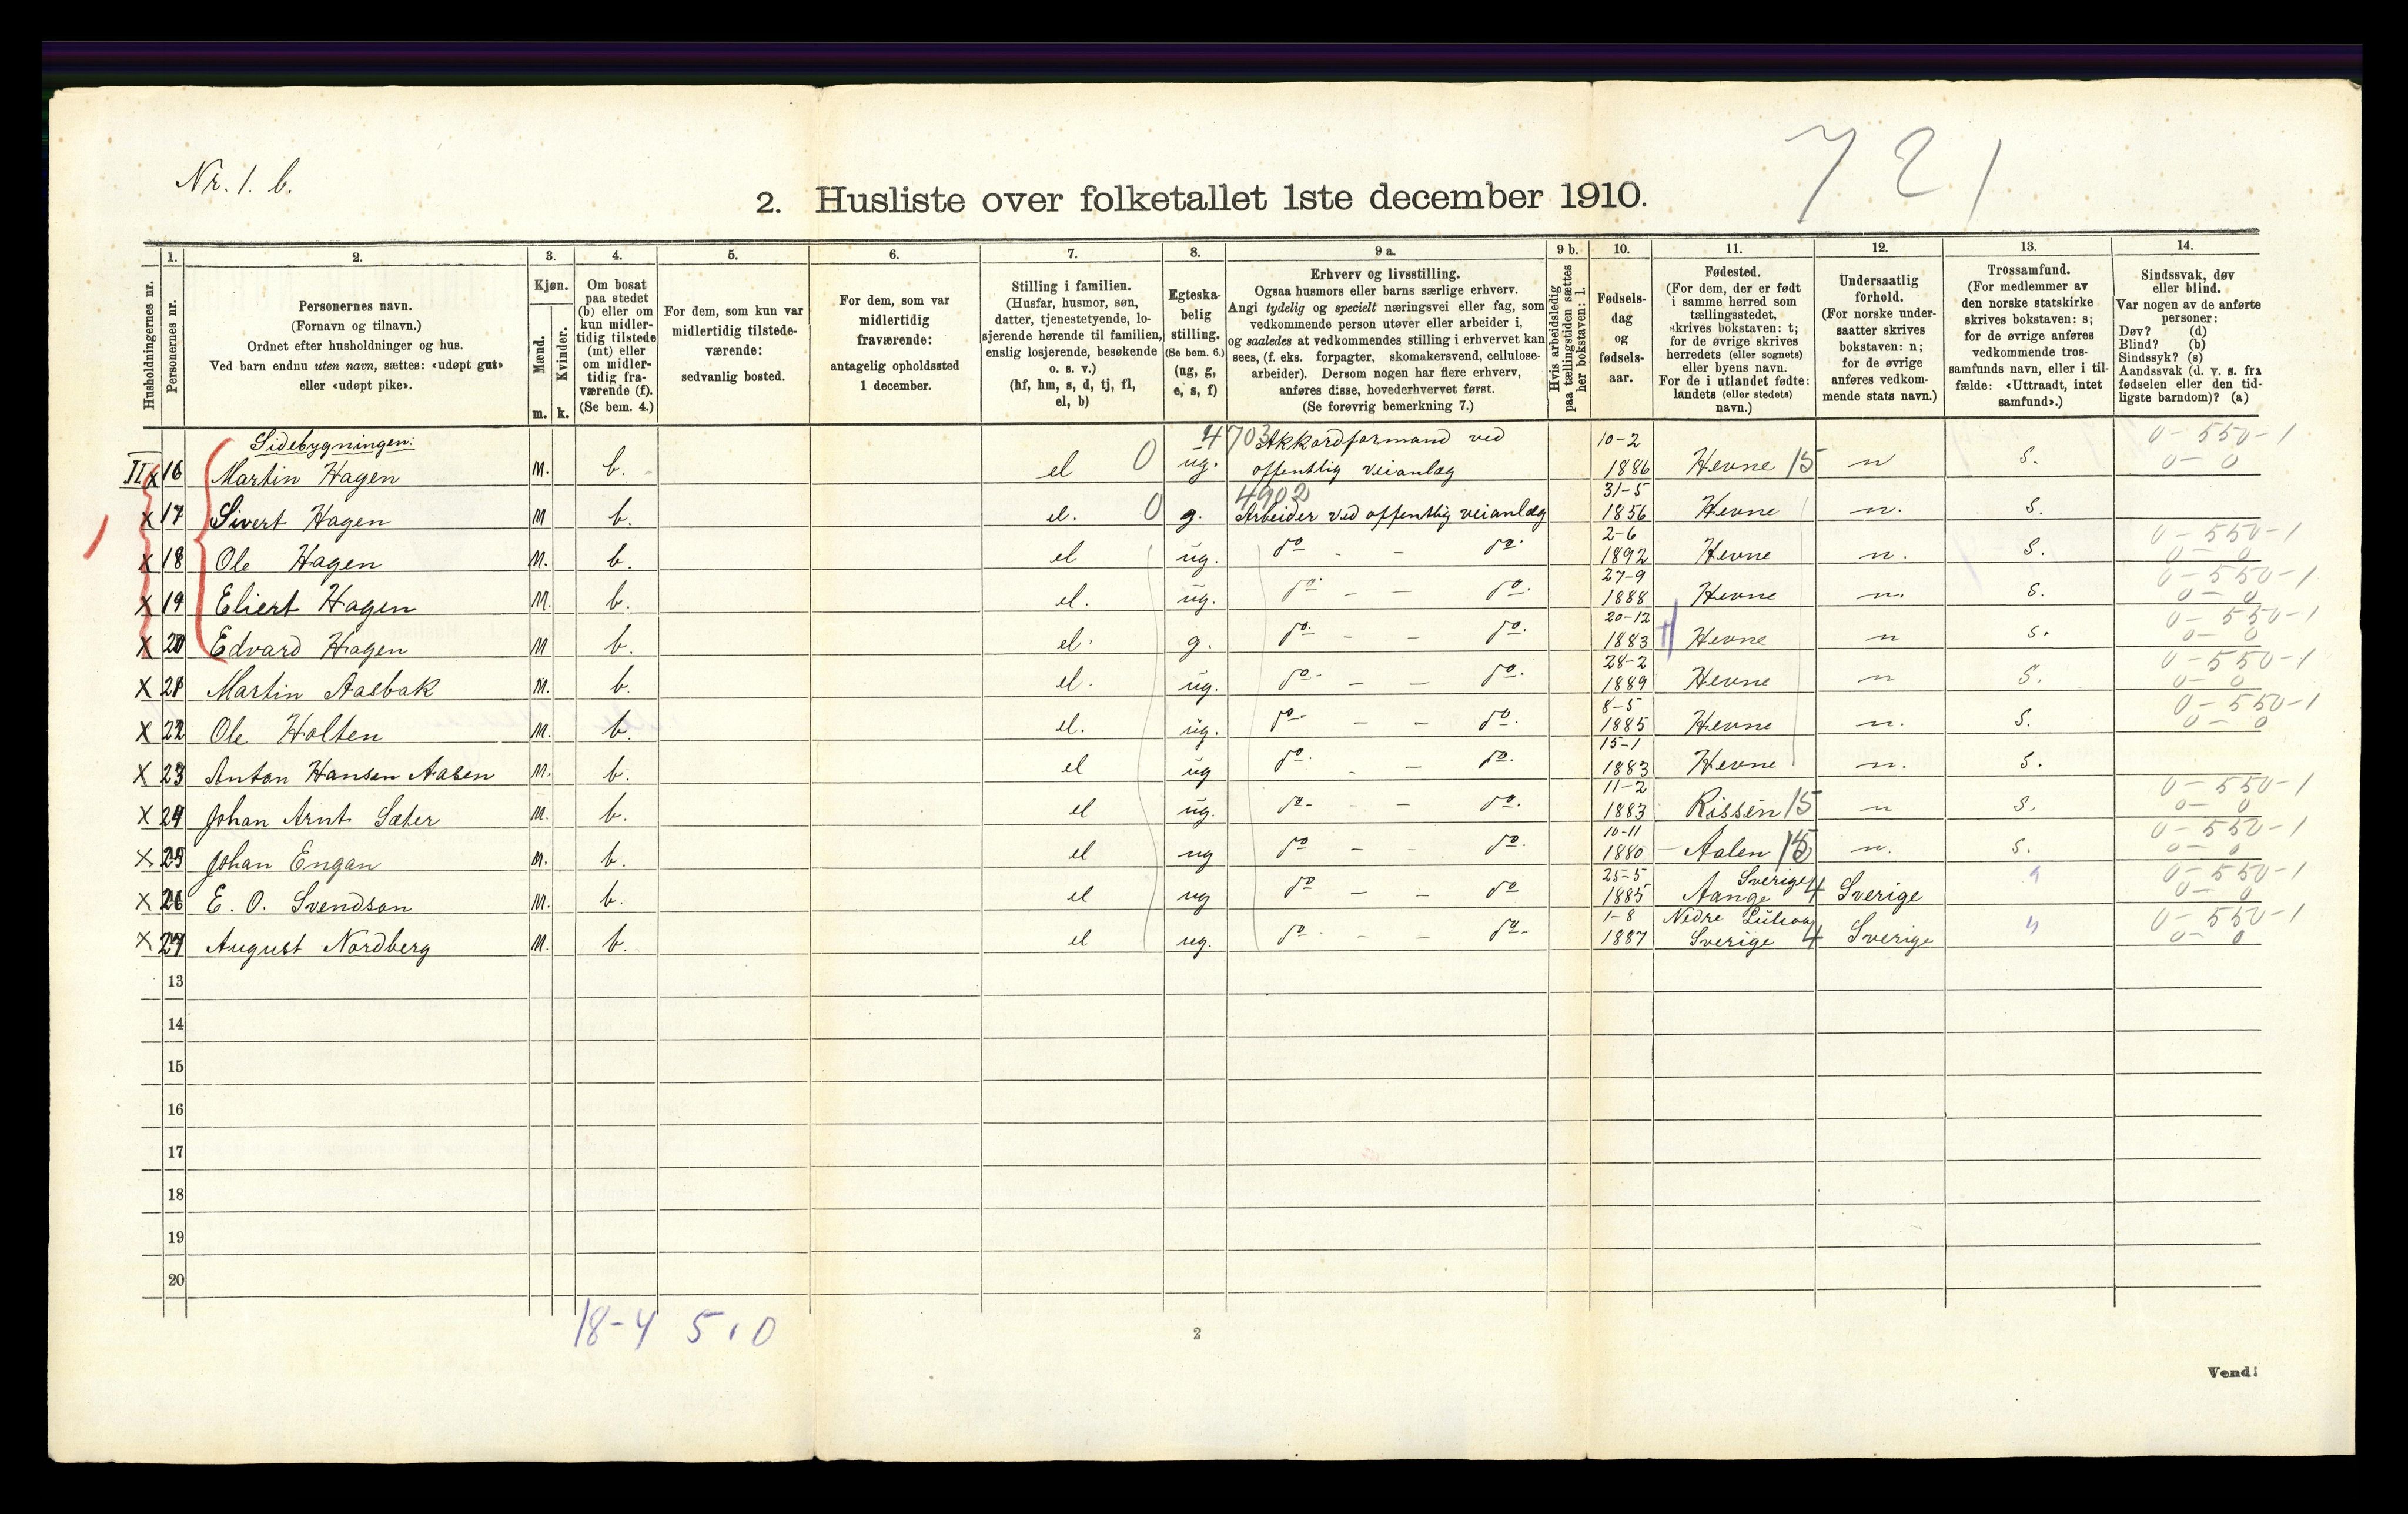 Nr. 1. b.
721
2. Husliste over folketallet 1ste december 1910.
1. 2. 3. 4. 5. 6. 7. 8. 9 a. 9 b. 10. 11. 12. 13. 14.
Husholdningernes nr.
Personernes nr.
Personernes navn.
(Fornavn og tilnavn.)
Ordnet efter husholdninger og hus.
Ved barn endnu uten navn, sættes: «udøpt gut»
eller «udøpt pike».
Kjøn.
Mænd.
Kvinder.
m. k.
Om bosat
paa stedet
(b) eller om
kun midler-
tidig tilstede
(mt) eller
om midler-
tidig fra-
værende (f).
(Se bem. 4.)
For dem, som kun var
midlertidig tilstede-
værende:
sedvanlig bosted.
For dem, som var
midlertidig
fraværende:
antagelig opholdssted
1 december.
Stilling i familien.
(Husfar, husmor, søn,
datter, tjenestetyende, lo-
sjerende hørende til familien,
enslig losjerende, besøkende
o. s. v.)
(hf, hm, s, d, tj, fl,
el, b)
Egteska-
belig
stilling.
(Se bem. 6.)
(ug, g,
e, s, f)
Erhverv og livsstilling.
Ogsaa husmors eller barns særlige erhverv.
Angi tydelig og specielt næringsvei eller fag, som
vedkommende person utøver eller arbeider i,
og saaledes at vedkommendes stilling i erhvervet kan
sees, (f. eks. forpagter, skomakersvend, cellulose-
arbeider). Dersom nogen har flere erhverv,
anføres disse, hovederhvervet først.
(Se forøvrig bemerkning 7.)
Hvis arbeidsledig
paa tællingstiden sættes
her bokstaven: l.
Fødsels-
dag
og
fødsels-
aar.
Fødested.
(For dem, der er født
i samme herred som
tællingsstedet,
skrives bokstaven: t;
for de øvrige skrives
herredets (eller sognets)
eller byens navn.
For de i utlandet fødte:
landets (eller stedets)
navn.)
Undersaatlig
forhold.
(For norske under-
saatter skrives
bokstaven: n;
for de øvrige
anføres vedkom-
mende stats navn.)
Trossamfund.
(For medlemmer av
den norske statskirke
skrives bokstaven: s;
for de øvrige anføres
vedkommende tros-
samfunds navn, eller i til-
fælde: «Uttraadt, intet
samfund».)
Sindssvak, døv
eller blind.
Var nogen av de anførte
personer:
Døv? (d)
Blind? (b)
Sindssyk? (s)
Aandssvak (d. v. s. fra
fødselen eller den tid-
ligste barndom)? (a)
Sidebygningen: 4703 Akkordformand ved 10-2 0-550-1
II x 16 Martin Hagen M. b. el 0 ug. offentlig veianlæg 1886 Hevne 15 n s. 0-0
4902 31-5
x 17 Sivert Hagen M b. el. 0 g. Arbeider ved offentlig veianlæg 1856 Hevne n. s.
2-6 0-550-1
x 18 Ole Hagen M. b. el ug. do - - do. 1892 Hevne n. s. 0-0
27-9 0-550-1
x 19 Eliert Hagen M. b. el. ug. do. - - do. 1888 Hevne n. s. 0-0
20-12 0-550-1
x 20 Edvard Hagen M b. el. g. do. - - do. 1883 Hevne n s. 0-0
28-2 0-550-1
x 21 Martin Aasbak M. b. el. ug. do. - - do. 1889 Hevne n s. 0-0
8-5 0-550-1
x 22 Ole Holten M. b. el. ug. do. - - do. 1885 Hevne n. s. 0-0
15-1
x 23 Anton Hansen Aasen M. b. el ug do. - - do. 1883 Hevne n. s.
11-2 0-550-1
x 24 Johan Arnt Sæter M. b. el ug. do. - - do. 1883 Rissen 15 n s. 0-0
10-11 0-550-1
x 25 Johan Engan M. b. el ug do - - do. 1880 Aalen 15 n. s. 0-0
25-5 Sverige 0-550-1
x 26 E. O. Svendson M. b. el ug do - - do 1885 Aange 4 Sverige 0-0
1-8 Nedre 0-550-1
x 27 August Nordberg M. b. el ug. do. - - do. 1887 Sverige 4 Sverige " 0-0
13
14
15
16
17
18
19
20
18-4 5.0
2
Vend!